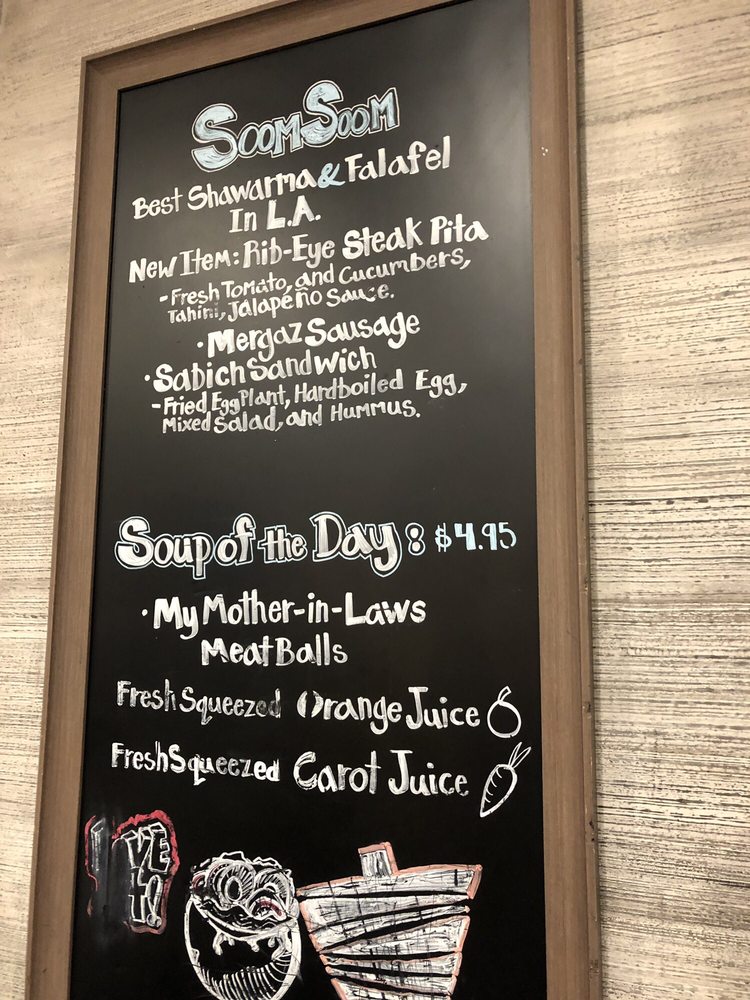 Soom-Soom
Best Shawarma & Falafel
In L.A.
New Item: Rib-Eye Steak Pita
-Fresh Tomato, and Cucumbers,
Tahini, Jalapeño Sauce.
• Mergaz Sausage
• Sabich Sandwich
-Fried EggPlant, Hardboiled Egg,
Mixed Salad, and Hummus.
Soup of the Day: $4.95
• My Mother-in-Laws
MeatBalls
Fresh Squeezed Orange Juice
Fresh Squeezed Carot Juice